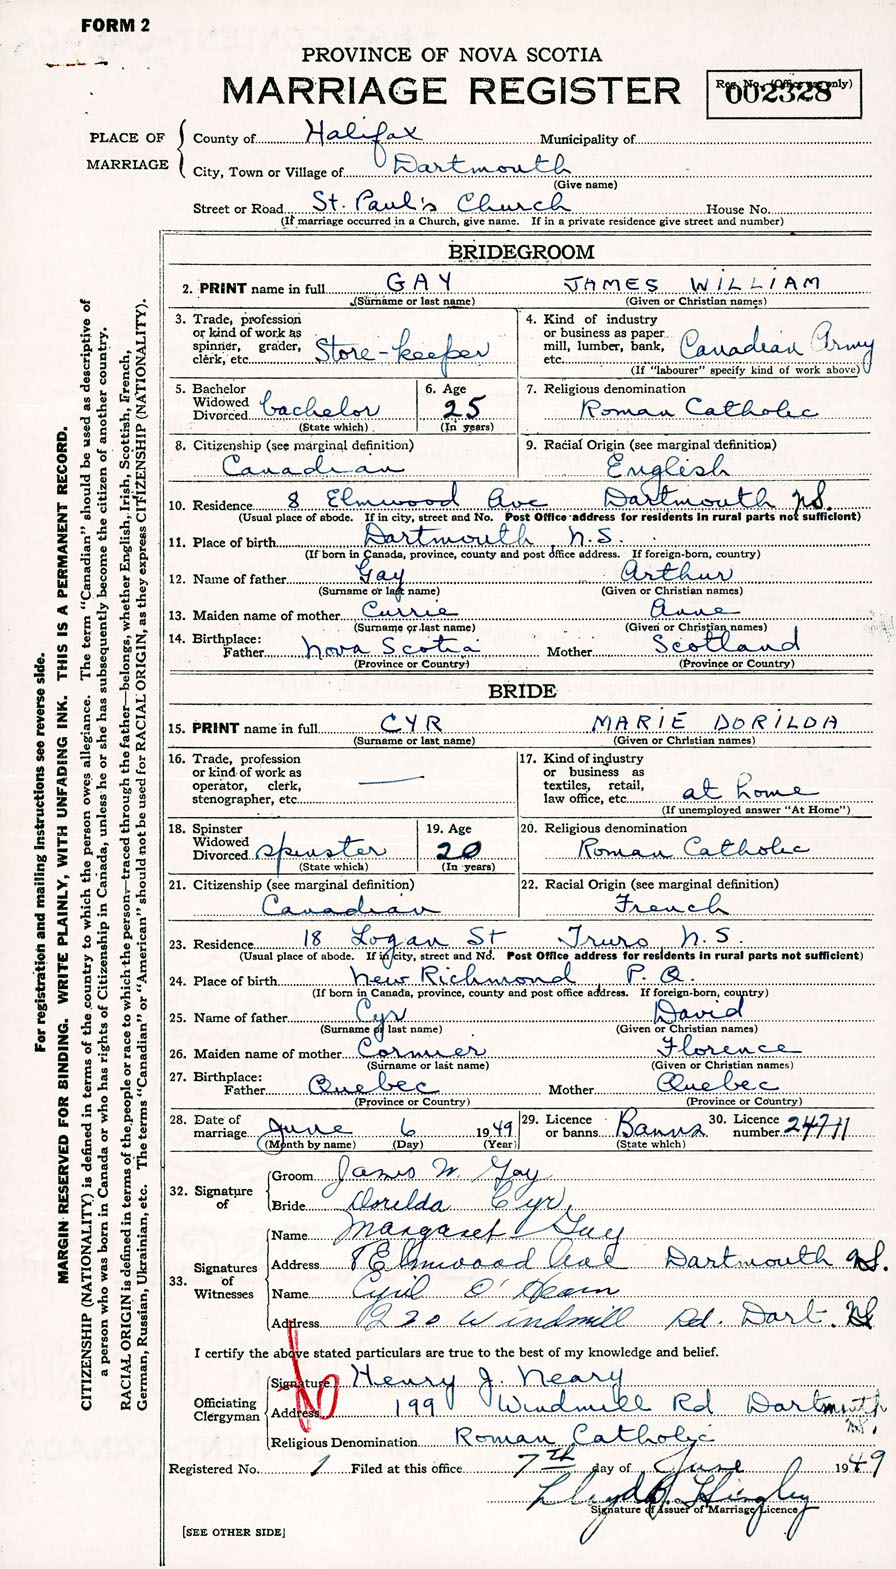 FORM 2
PROVINCE OF NOVA SCOTIA
MARRIAGE REGISTER
Reg. No. (Office use only)
002328
PLACE OF MARRIAGE
County of Halifax Municipality of
City, Town or Village of Dartmouth
(Give name)
Street or Road St. Paul's Church House No.
(If marriage occurred in a Church, give name. If in a private residence give street and number)
BRIDEGROOM
2. PRINT name in full GAY JAMES WILLIAM
(Surname or last name) (Given or Christian names)
3. Trade, profession or kind of work as spinner, grader, clerk, etc. Store-keeper
4. Kind of industry or business as paper mill, lumber, bank, etc. Canadian Army
(If "labourer" specify kind of work above)
5. Bachelor Widowed Divorced bachelor
(State which)
6. Age 25
(In years)
7. Religious denomination
Roman Catholic
8. Citizenship (see marginal definition)
Canadian
9. Racial Origin (see marginal definition)
English
10. Residence 8 Elmwood Ave Dartmouth N.S.
(Usual place of abode. If in city, street and No. Post Office address for residents in rural parts not sufficient)
11. Place of birth Dartmouth N.S.
(If born in Canada, province, county and post office address. If foreign-born, country)
12. Name of father Gay Arthur
(Surname or last name) (Given or Christian names)
13. Maiden name of mother Currie Anne
(Surname or last name) (Given or Christian names)
14. Birthplace:
Father Nova Scotia Mother Scotland
(Province or Country) (Province or Country)
BRIDE
15. PRINT name in full CYR MARIE DORILDA
(Surname or last name) (Given or Christian names)
16. Trade, profession or kind of work as operator, clerk, stenographer, etc. —
17. Kind of industry or business as textiles, retail, law office, etc. at home
(If unemployed answer "At Home")
18. Spinster Widowed Divorced spinster
(State which)
19. Age 20
(In years)
20. Religious denomination
Roman Catholic
21. Citizenship (see marginal definition)
Canadian
22. Racial Origin (see marginal definition)
French
23. Residence 18 Logan St Truro N.S.
(Usual place of abode. If in city, street and No. Post Office address for residents in rural parts not sufficient)
24. Place of birth New Richmond P.Q.
(If born in Canada, province, county and post office address. If foreign-born, country)
25. Name of father Cyr David
(Surname or last name) (Given or Christian names)
26. Maiden name of mother Cormier Florence
(Surname or last name) (Given or Christian names)
27. Birthplace:
Father Quebec Mother Quebec
(Province or Country) (Province or Country)
28. Date of marriage June 6 1949
(Month by name) (Day) (Year)
29. Licence or banns Banns
(State which)
30. Licence number 24711
32. Signature of
Groom James W. Gay
Bride Dorilda Cyr
33. Signatures of Witnesses
Name Margaret Gay
Address 8 Elmwood Ave Dartmouth N.S.
Name Cyril O'Hearn
Address 220 Windmill Rd. Dart. NS
I certify the above stated particulars are true to the best of my knowledge and belief.
Officiating Clergyman
Signature Henry J. Neary
Address 199 Windmill Rd Dartmouth N.S.
Religious Denomination Roman Catholic
Registered No. 1 Filed at this office 7th day of June 1949
Lloyd
Signature of Issuer of Marriage Licence
[SEE OTHER SIDE]
For registration and mailing instructions see reverse side.
MARGIN RESERVED FOR BINDING. WRITE PLAINLY, WITH UNFADING INK. THIS IS A PERMANENT RECORD.
CITIZENSHIP (NATIONALITY) is defined in terms of the country to which the person owes allegiance. The term "Canadian" should be used as descriptive of
a person who was born in Canada or who has rights of Citizenship in Canada, unless he or she has subsequently become the citizen of another country.
RACIAL ORIGIN is defined in terms of the people or race to which the person—traced through the father—belongs, whether English, Irish, Scottish, French,
German, Russian, Ukrainian, etc. The terms "Canadian" or "American" should not be used for RACIAL ORIGIN, as they express CITIZENSHIP (NATIONALITY).